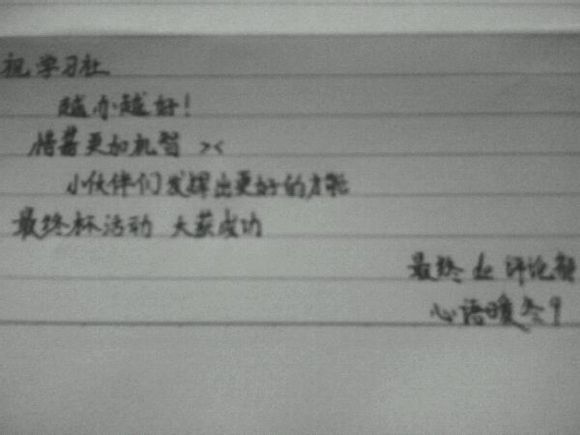 祝学习社
越办越好!
更加机智 ><
小伙伴们发挥出更好的才能
最终杯活动 大获成功
最终 评论
心语暖冬